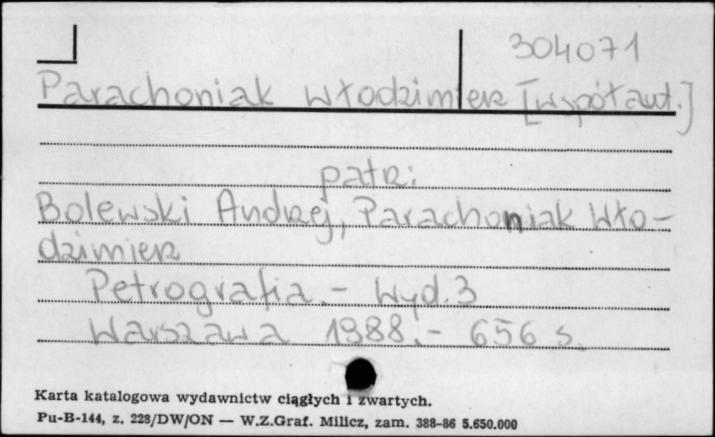 304071
Parachoniak Włodzimierz [współaut.]
patrz:
Bolewski Andrzej, Parachoniak Wło-
dzimierz
Petrografia. - Wyd. 3
Warszawa 1988. - 656 s.
Karta katalogowa wydawnictw ciągłych i zwartych.
Pu-B-144, z. 228/DW/ON — W.Z.Graf. Milicz, zam. 388-86 5.650.000